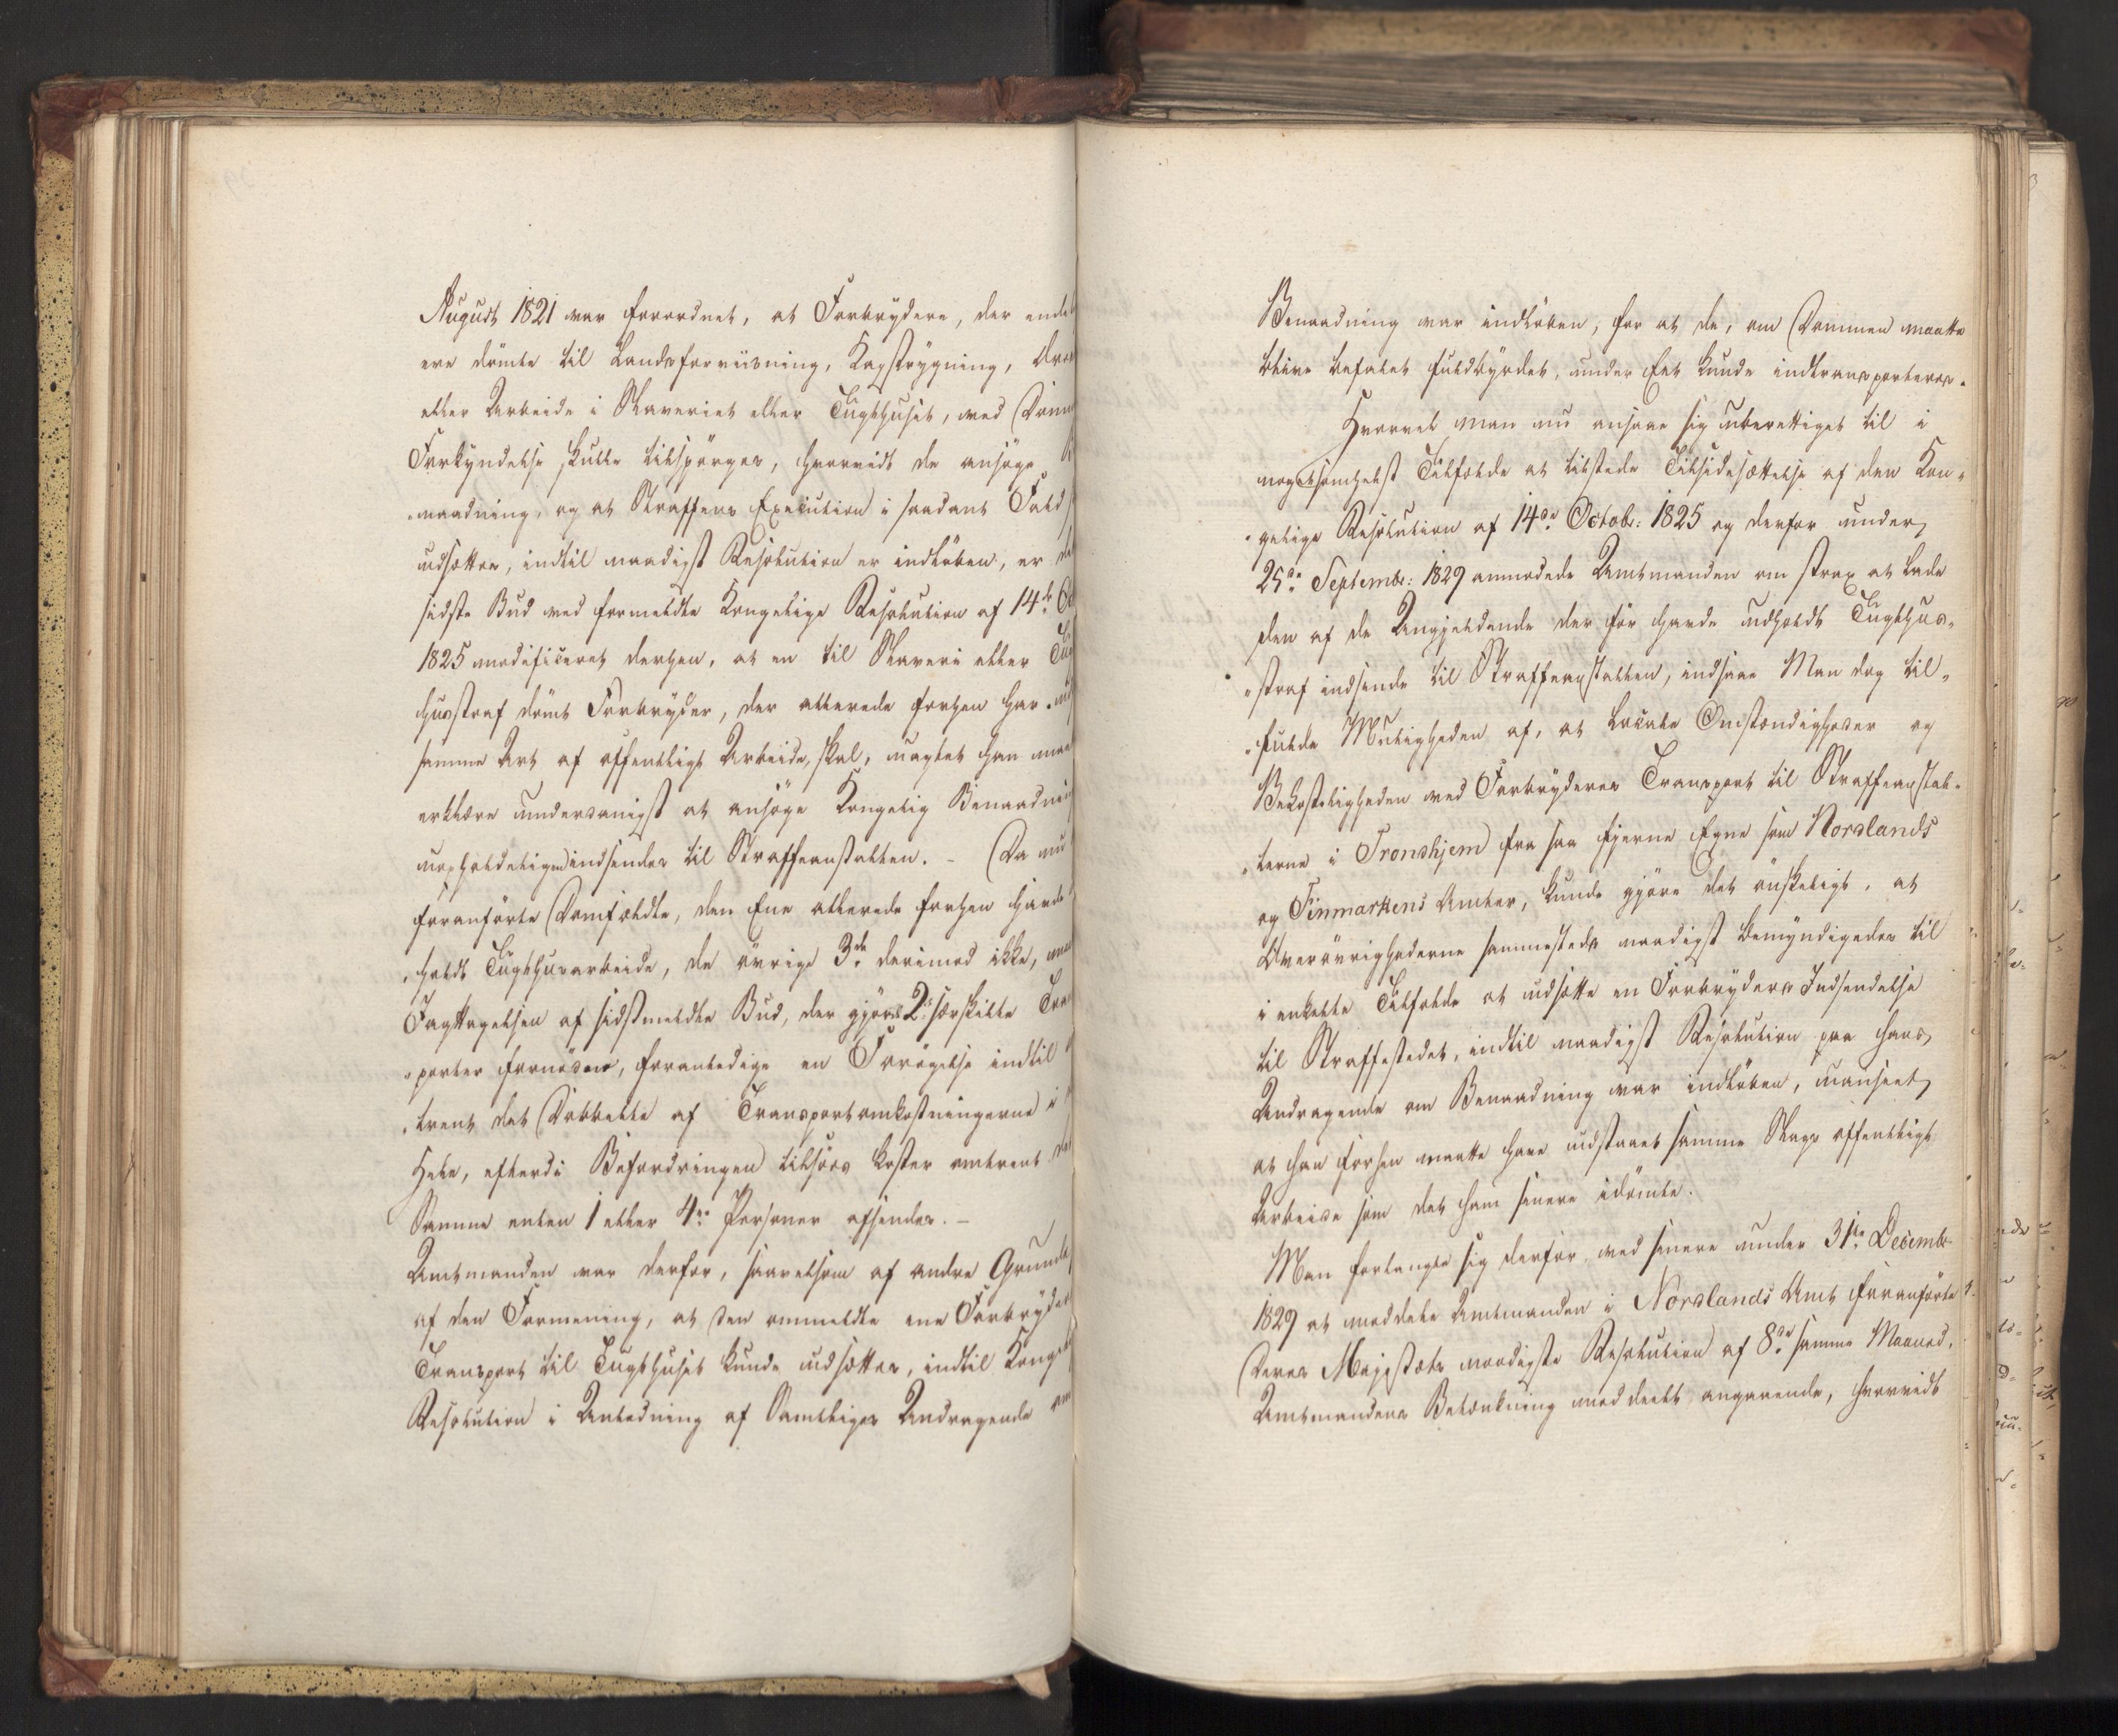 August 1821 var forordnet, at Forbrydere, der ende
ere dömte til Landsforviisning, Kagstrygning,
eller Arbeide i Slaveriet eller Tugthuset, ved Dom
Forkyndelse skulle tilspörges, hvorvidt de ansöge B
„naadning, og at Straffens Execution i saadant Fald
udsættes, indtil naadigst Resolution er indlöben, er de
sidste Bud ved formeldte Kongelige Resolution af 14de Oc
1825 modificeret derhen, at en til Slaveri eller Tug
husstraf dömt Forbryder, der allerede forhen har ud
samme Art af offentligt Arbeide, skal, uagtet han maa
erklære underdanigst at ansöge Kongelig Benaadning
uopholdeligen indsendes til Straffeanstalten. - Da nu
foranförte Domfældte, den Ene allerede forhen havde
„holdt Tugthusarbeide, de övrige 3de derimod ikke,
Iagttagelsen af sidstmeldte Bud, der gjöre 2 særskilte Tra
„porter fornödne, foranledige en Forögelse indtil
„trent det Dobbelte af Transportomkostningerne i
Hele, efterdi Befordringen tilsöes koster omtrent det
Samme enten 1 eller 4re Personer afsendes. -
Amtmanden var derfor, saavelsom af andre Grunde
af den Formening, at den ommeldte ene Forbryder
Transport til Tugthuset kunde udsættes, indtil Kongel
Resolution i Anledning af Samtliges Andragende om
Benaadning var indlöben, for at de, om Dommen maatte
blive befalet fuldbyrdet, under Eet kunde indtransporteres.
Hvorvel man nu ansaae sig uberettiget til i
nogetsomhelst Tilfælde at tilstede Tilsidesættelse af den Kon„
„gelige Resolution af 14de Octobr: 1825 og derfor under
25de Septembr: 1829 anmodede Amtmanden om strax at lade
den af de Angjeldende der för havde udholdt Tugthus„
„straf indsende til Straffeanstalten, indsaae Man dog til„
„fulde Muligheden af, at locale Omstændigheder og
Bekosteligheden ved Forbryderes Transport til Straffeanstal„
„terne i Trondhjem fra saa fjerne Egne som Nordlands
og Finmarkens Amter, kunde gjöre det önskeligt, at
Overövrighederne sammesteds naadigst bemyndigedes til
i enkelte Tilfælde at udsætte en Forbryders Indsendelse
til Straffestedet, indtil naadigst Resolution paa hans
Andragende om Benaadning var indlöben, uanseet
at han forhen maatte have udstaaet samme Slags offentligt
Arbeide som det ham senere idömte.
Man forlangte sig derfor, ved senere under 31te Decembr
1829 at meddele Amtmanden i Nordlands Amt foranförte
Deres Majestæts naadigste Resolution af 8de samme Maaned,
Amtmandens Betænkning meddeelt angaaende, hvorvidt